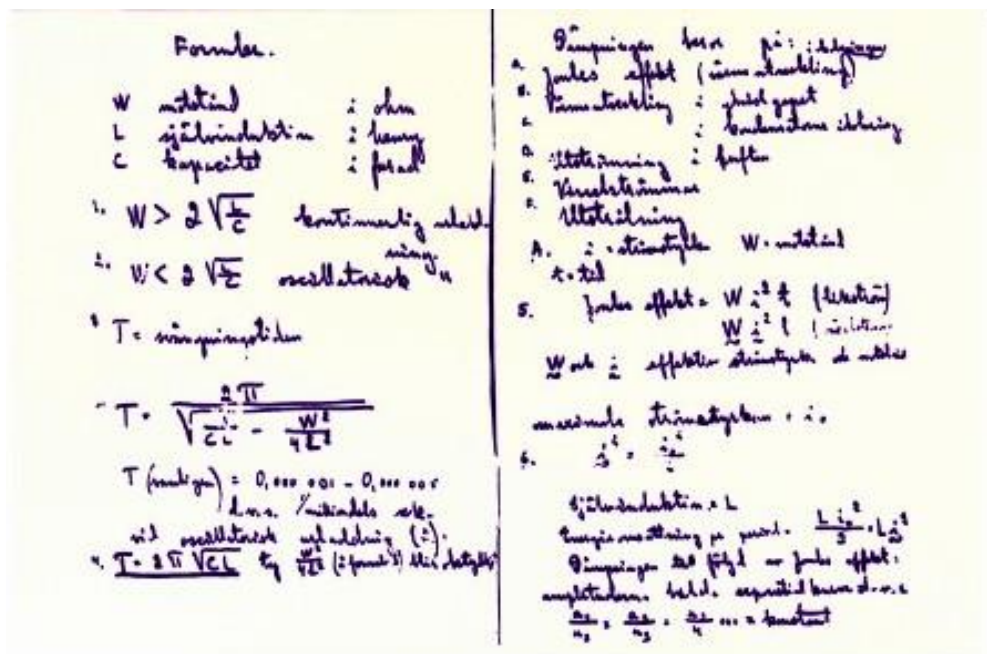 Formler.
W motstånd i ohm
L självinduktion i henry
C kapacitet i farad
1. W > 2 √(L/C) kontinuerlig urladd-
ning.
2. W < 2 √(L/C) oscillatorisk "
3 T = svängningstiden
T = 2π / √(1/CL - W²/4L²)
T (vanligen) = 0,000 001 - 0,000 005
d.v.s. sek.
vid oscillatorisk urladdning (2).
4. T = 2π √CL ty W²/4L² (i formel 3) blir
Dämpningen beror på:
A. Joules effekt (värmeutveckling)
B. Värmeutveckling i gnistgapet
C. i kondensatorns
D. Utströmning i luften
E. Virvelströmmar
F. Utstrålning
A. i = strömstyrka W = motstånd
t = tid
5. Joules effekt = W i² t (likström)
W i² t
W och i effektiv strömstyrka
maximala strömstyrkan = i₀
6. i² = i₀²/2
Självinduktion = L
Energiomsättning pr period. L i₀²/2 = L i²
Dämpningen till följd av Joules effekt:
amplituderna d.v.s
a₁/a₂ = a₂/a₃ = a₃/a₄ ... = konstant